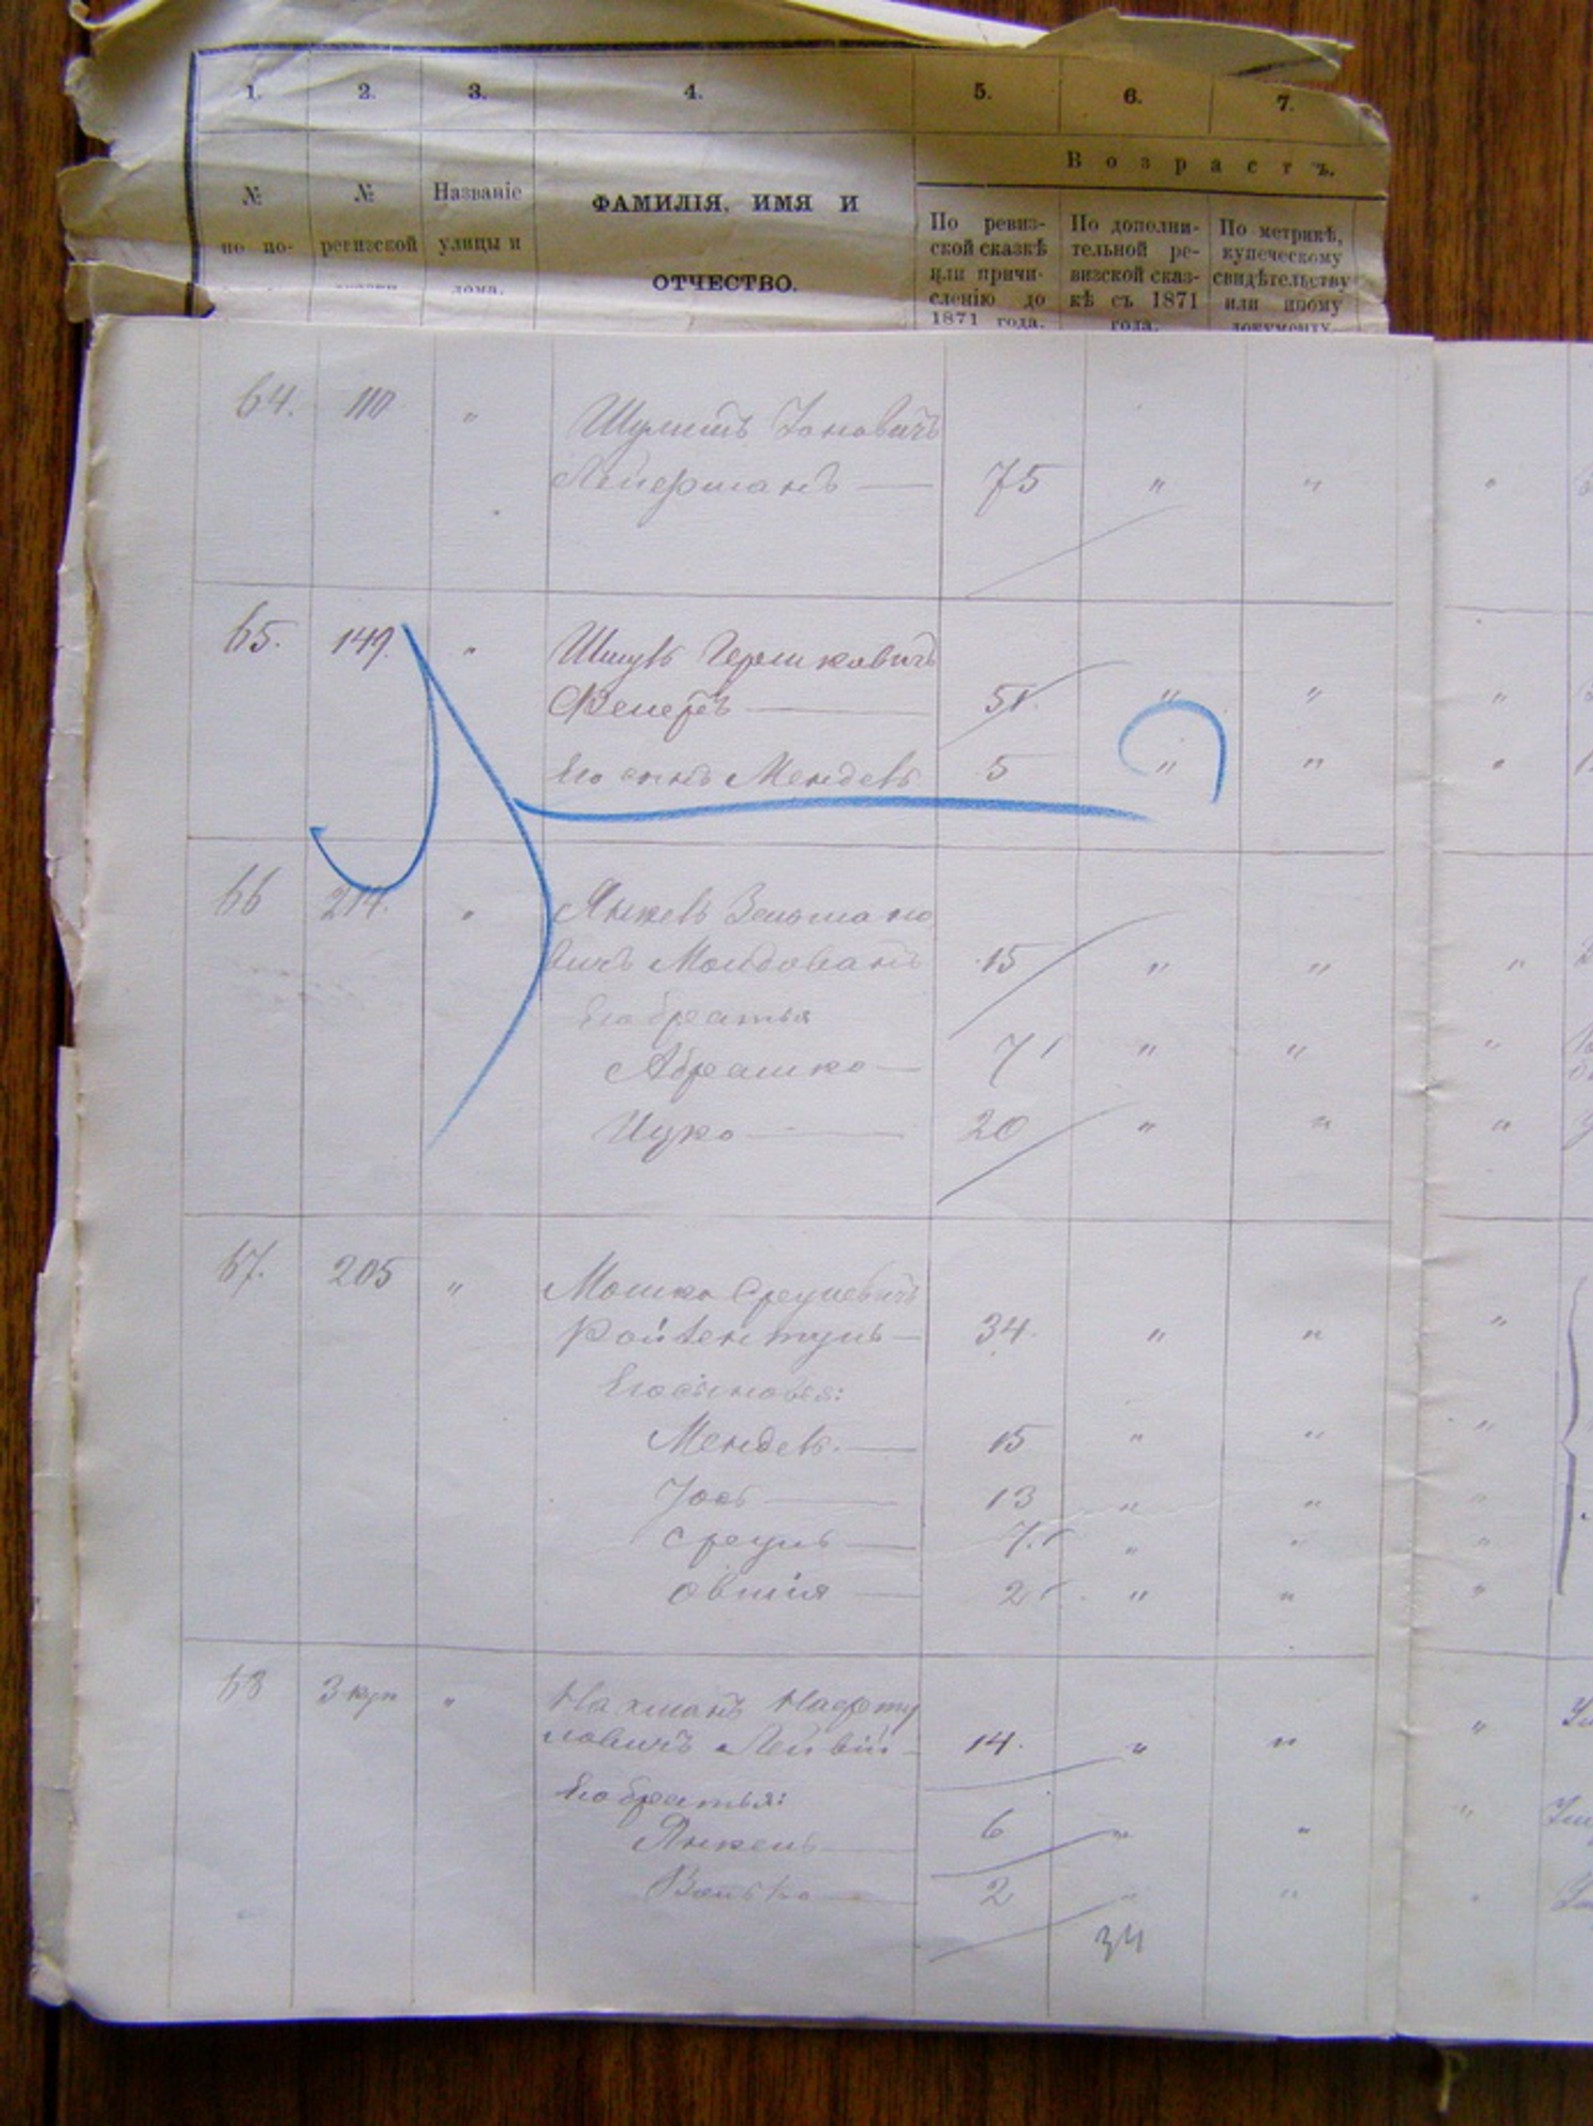 1. 2. 3. 4. 5. 6. 7.
Возрастъ.
№ № Названіе ФАМИЛІЯ, ИМЯ И
по по- ревизской улицы и
дома. ОТЧЕСТВО.
По ревиз-
ской сказкѣ
или причи-
сленію до
1871 года.
По дополни-
тельной ре-
визской сказ-
кѣ съ 1871
года.
По метрикѣ,
купеческому
свидѣтельству
или иному
документу.
64. 110 "
Лейферманъ — 75 " "
65. 149. " Шмуль Гершковичъ
51 " "
Его сынъ Мендель 5 " "
66 214. " Янкель Зельмано
вичъ Молдованъ 15 " "
Его братья
Абрашко — 7 " "
Ицко — 20 " "
67. 205 " Мошко Сруlевичъ
Ройтентуль — 34. " "
Его сыновья:
Мендель. — 15 " "
Іось — 13 " "
Сруль — 7. " "
Овшія — 2 " "
68 3 куп " Нахманъ Нафту
ловичъ Лейвій — 14. " "
Его братья:
Янкель — 6 " "
Волько — 2 " "
34